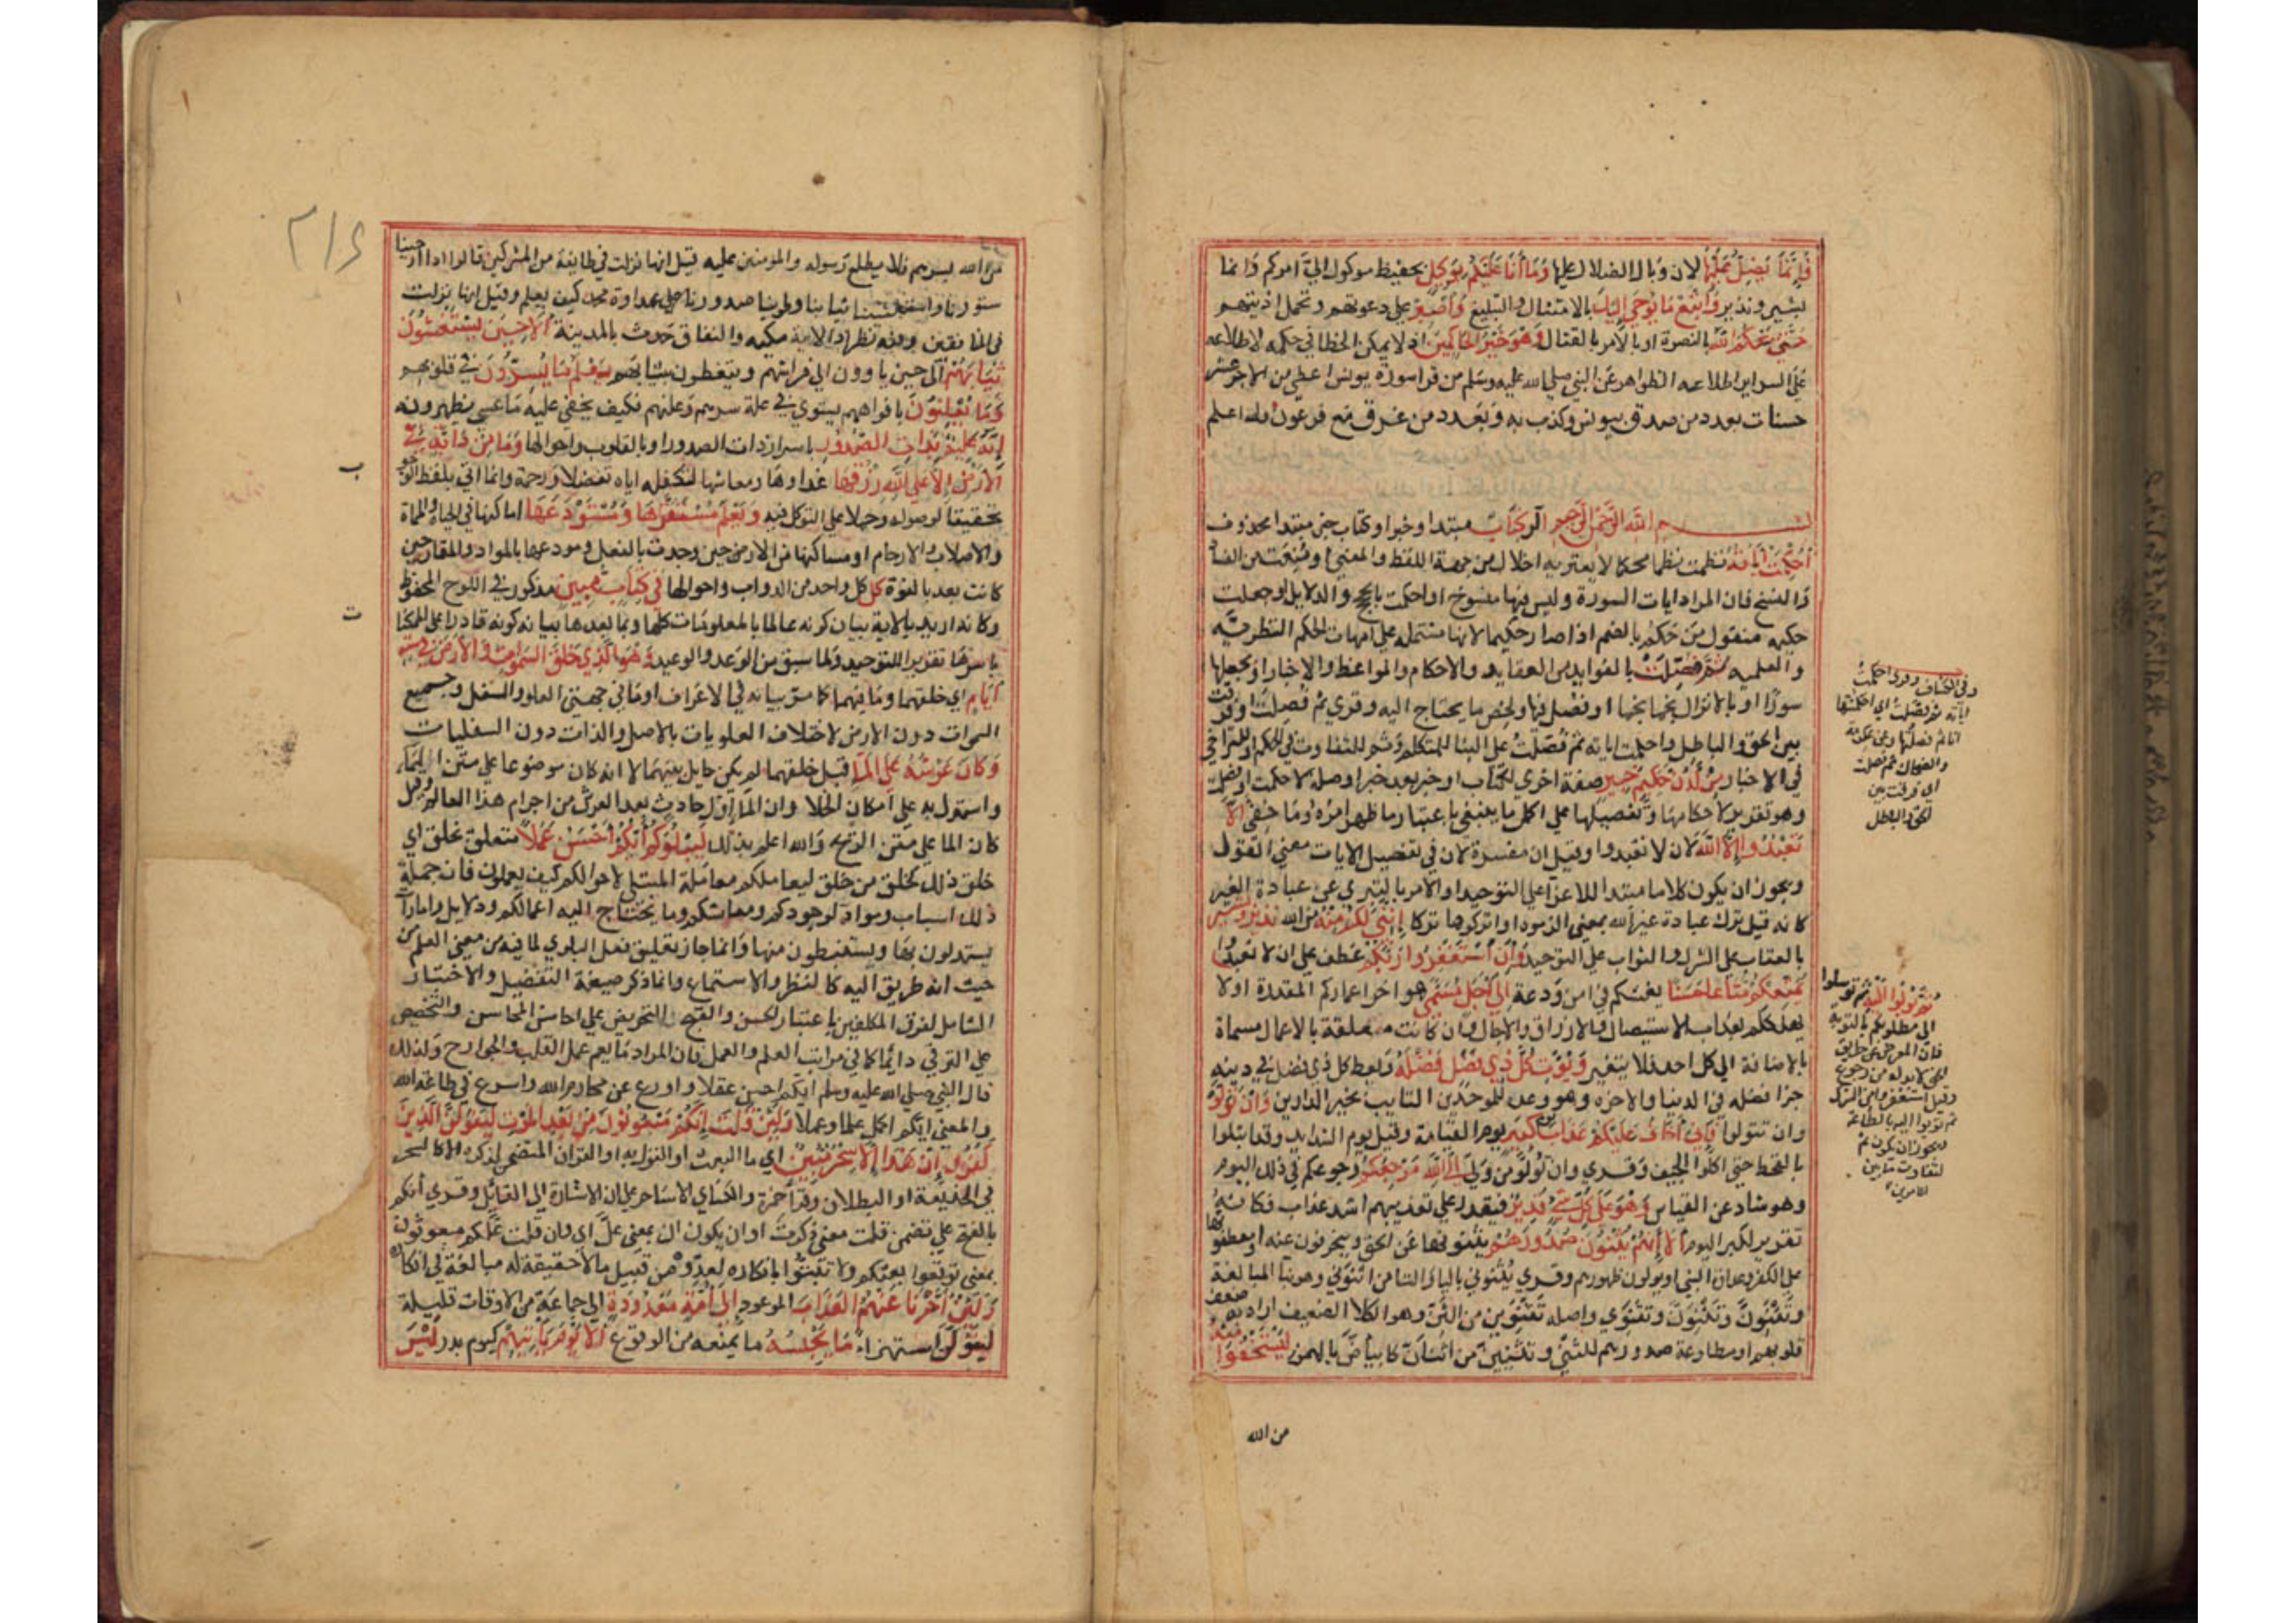 فَإِنَّمَا يَضِلُّ عَلَيْهَا لان وبال الضلال عليها وَمَا أَنَا عَلَيْكُمْ بِوَكِيلٍ بحفيظ موكول اليّ امركم وانما
بشير ونذير وَاتَّبِعْ مَا يُوحَى إِلَيْكَ بالامتثال والتبليغ وَاصْبِرْ على دعوتهم وتحمل اذيتهم
حَتَّى يَحْكُمَ اللهُ بالنصرة او بالامر بالقتال وَهُوَ خَيْرُ الحَاكِمِينَ اذ لا يمكن الخطا في حكمه لاطلاعه
على السراير اطلاعه الظواهر عن النبي صلى الله عليه وسلم من قرا سورة يونس اعطي من الاجر عشر
حسنات بعدد من صدق بيونس وكذب به وبعدد من غرق مع فرعون والله اعلم
بسم الله الرحمن الرحيم الر كِتَابٌ مبتدا وخبر او كتاب خبر مبتدا محذوف
أُحْكِمَتْ آيَاتُهُ نظمت نظما محكما لا يعتريه اخلال من جهة اللفظ والمعنى او منعت من الفساد
والنسخ فان المراد ايات السورة وليس فيها منسوخ او احكمت بالحجج والدلايل او جعلت
حكيمه منقول من حكم بالضم اذا صار حكيما لانها مشتمله على امهات الحكم النظريّه
والعلميه ثُمَّ فُصِّلَتْ بالفوايد من العقايد والاحكام والمواعظ والاخبار او بجعلها
سورًا او بالانزال نجما نجما او فصل فيها ولخص ما يحتاج اليه وقري ثم فَصَلَتْ اي فرقت
بين الحق والباطل واحكمت اياته ثم فَصَّلْتُ على البنا للمتكلم وثم للتفاوت في الحكم او للتراخي
في الاخبار مِنْ لَدُنْ حَكِيمٍ خَبِيرٍ صفة اخرى لكتاب او خبر بعد خبر او صلة لاحكمت او فصلت
وهو تقرير لاحكامها وتفصيلها على اكمل ما ينبغي باعتبار ما ظهر امره وما خفي أَلَّا
تَعْبُدُوا إِلَّا اللهَ لان لا تعبدوا وقيل ان مفسرة لان في تفصيل الايات معنى القول
ويجوز ان يكون كلاما مبتدا للاغرا على التوحيد او الامر بالتبري عن عبادة الغير
كانه قيل ترك عبادة غير الله بمعنى الزموه او اتركوها تركا إِنَّنِي لَكُمْ مِنْهُ من الله نَذِيرٌ وَبَشِيرٌ
بالعقاب على الشرك والثواب على التوحيد وَأَنِ اسْتَغْفِرُوا رَبَّكُمْ عطف على ان لا تعبدوا
يُمَتِّعْكُمْ مَتَاعًا حَسَنًا يعشكم في امن ودعة إِلَى أَجَلٍ مُسَمًّى هو اخر اعماركم المقدرة او لا
يهلككم بعذاب الاستيصال والارزاق والاجال وان كانت متعلقة بالاعمال مسماة
بالاضافة الى كل احد فلا يتغير وَيُؤْتِ كُلَّ ذِي فَضْلٍ فَضْلَهُ ويعط كل ذي فضل في دينه
جزا فضله في الدنيا والاخره وهو وعد للموحدين التايب بخير الدارين وَإِنْ تَوَلَّوْا
وان تتولوا فَإِنِّي أَخَافُ عَلَيْكُمْ عَذَابَ يَوْمٍ كَبِيرٍ يوم القيامة وقيل يوم الشدايد وقد ابتلوا
بالقحط حتى اكلوا الجيف وقري وان تُوَلُّوْا من وَلَّى إِلَى اللهِ مَرْجِعُكُمْ رجوعكم في ذلك اليوم
وهو شاذ عن القياس وَهُوَ عَلَى كُلِّ شَيْءٍ قَدِيرٌ فيقدر على تعذيبهم اشد عذاب فكانه
تقرير لكبر اليوم أَلَا إِنَّهُمْ يَثْنُونَ صُدُورَهُمْ يثنونها عن الحق وينحرفون عنه او يعطفونها
على الكفر وعداوة النبي او يولون ظهورهم وقري يُثْنَوْنِي باليا والتا من اثنوني وهو بنا المبالغة
وتَثْنَوِنُّ وتَثْنَئِنُّ وتَثْنَوِي واصله تَثْنَوْنِنُ من الثِّنِّ وهو الكلا الضعيف اراد به ضعف
قلوبهم او مطاوعة صدورهم للثني وتَثْنَئِنُّ من اثنانّ كابياضّ بالهمز لِيَسْتَخْفُوا مِنْهُ
وفي الكشاف وقري احكمتُ
اياته ثم فصلتُ اي احكمتها
انا ثم فصلتها وعن عكرمة
والضحاك ثم فصلت
اي فرقت بين
الحق والباطل
ثُمَّ تُوبُوا إِلَيْهِ ثم توسلوا
الى مطلوبكم بالتوبة
فان المعرض عن طريق
الحق لا بد له من رجوع
وقيل استغفروا من الشرك
ثم توبوا اليه بالطاعة
ويجوز ان يكون ثم
لتفاوت ما بين
الامرين
من الله
٢١٤
من الله بسرهم فلا يطلع رسوله والمومنين عليه قيل انها نزلت في طايفة من المشركين قالوا اذا ارخينا
ستورنا واستغشينا ثيابنا وطوينا صدورنا على عداوة محمد كيف يعلم وقيل انها نزلت
في المنافقين وفيه نظر اذ الاية مكيه والنفاق حدث بالمدينة أَلَا حِينَ يَسْتَغْشُونَ
ثِيَابَهُمْ الى حين ياوون الى فراشهم ويتغطون بثيابهم يَعْلَمُ مَا يُسِرُّونَ في قلوبهم
وَمَا يُعْلِنُونَ بافواههم يستوي في علمه سرهم وعلنهم فكيف يخفى عليه ما عسى يظهرونه
إِنَّهُ عَلِيمٌ بِذَاتِ الصُّدُورِ باسرار ذات الصدور او بالقلوب واحوالها وَمَا مِنْ دَابَّةٍ فِي
الأَرْضِ إِلَّا عَلَى اللهِ رِزْقُهَا غذاوها ومعاشها لتكفله اياه تفضلا ورحمة وانما اتى بلفظ الوجوب
تحقيقا لوصوله وحملا على التوكل فيه وَيَعْلَمُ مُسْتَقَرَّهَا وَمُسْتَوْدَعَهَا اماكنها في الحياة والمماة
والاصلاب والارحام او مساكنها من الارض حين وجدت بالفعل ومودعها بالمواد والمقار حين
كانت بعد بالقوة كُلٌّ كل واحد من الدواب واحوالها فِي كِتَابٍ مُبِينٍ مذكور في اللوح المحفوظ
وكانه اريد بالاية بيان كونه عالما بالمعلومات كلها وبما بعدها بيانه كونه قادرا على الممكنات
باسرها تقريرا للتوحيد ولما سبق من الوعد والوعيد وَهُوَ الَّذِي خَلَقَ السَّمَوَاتِ وَالأَرْضَ فِي سِتَّةِ
أَيَّامٍ اي خلقهما وما فيهما كما مر بيانه في الاعراف او ما في جهتي العلو والسفل وجميع
السموات دون الارض لاختلاف العلويات بالاصل والذات دون السفليات
وَكَانَ عَرْشُهُ عَلَى المَاءِ قبل خلقهما لم يكن حايل بينهما لا انه كان موضوعا على متن الماء
واستدل به على امكان الخلا وان الما اول حادث بعد العرش من اجرام هذا العالم وقيل
كان الما على متن الريح والله اعلم بذلك لِيَبْلُوَكُمْ أَيُّكُمْ أَحْسَنُ عَمَلًا متعلق بخلق اي
خلق ذلك كخلق من خلق ليعاملكم معاملة المبتلي لاحوالكم كيف يعملون فان جملة
ذلك اسباب ومواد لوجودكم ومعاشكم وما يحتاج اليه اعمالكم ودلايل وامارات
يستدلون بها ويستنبطون منها وانما جاز تعليق فعل البلوي لما فيه من معنى العلم من
حيث انه طريق اليه كالنظر والاستماع وانما ذكر صيغة التفضيل والاختبار
الشامل لفرق المكلفين باعتبار الحسن والقبح للتحريض على احاسن المحاسن والتحضيض
على الترقي دائما كما في مراتب العلم والعمل فان المراد ما يعم عمل القلب والجوارح ولذلك
قال النبي صلى الله عليه وسلم ايكم احسن عقلا واورع عن محارم الله واسرع في طاعة الله
والمعنى ايكم اكمل علما وعملا وَلَئِنْ قُلْتَ إِنَّكُمْ مَبْعُوثُونَ مِنْ بَعْدِ المَوْتِ لَيَقُولَنَّ الَّذِينَ
كَفَرُوا إِنْ هَذَا إِلَّا سِحْرٌ مُبِينٌ اي ما البعث او القول به او القران المتضمن لذكره الا كالسحر
في الخديعة او البطلان وقرا حمزة والكساي الا ساحر على ان الاشارة الى القايل وقري أنكم
بالفتح على تضمن قلت معنى ذكرت او ان يكون ان بمعنى علّ اي وان قلت علّكم مبعوثون
بمعنى توقعوا بعثكم ولا تبتّوا بانكاره لعدّوه من قبيل ما لا حقيقة له مبالغة في انكاره
وَلَئِنْ أَخَّرْنَا عَنْهُمُ العَذَابَ الموعود إِلَى أُمَّةٍ مَعْدُودَةٍ الى جماعة من الاوقات قليلة
لَيَقُولُنَّ استهزاء مَا يَحْبِسُهُ ما يمنعه من الوقوع أَلَا يَوْمَ يَأْتِيهِمْ كيوم بدر لَيْسَ
ب
ت